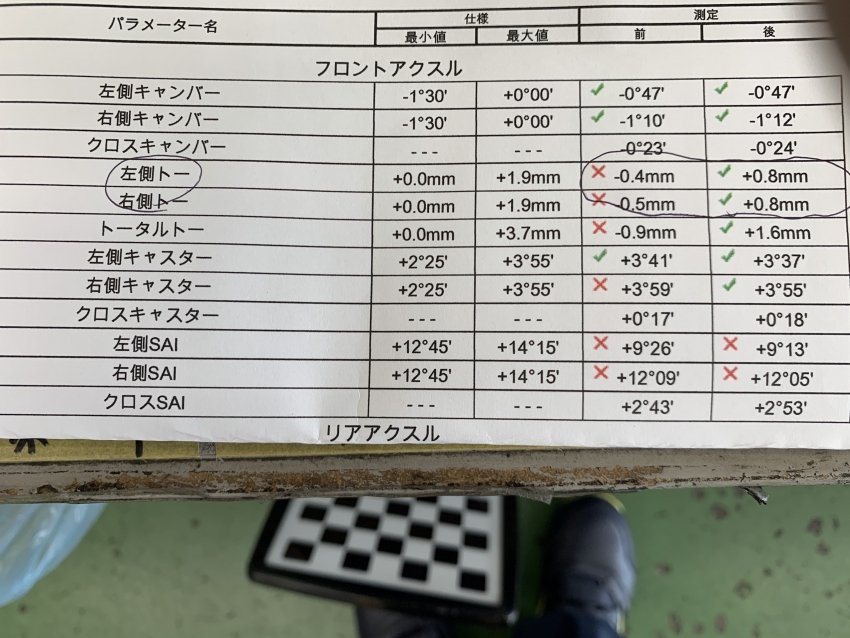 パラメーター名 仕様 測定
最小値 最大値 前 後
フロントアクスル
左側キャンバー -1°30' +0°00' -0°47' -0°47'
右側キャンバー -1°30' +0°00' -1°10' -1°12'
クロスキャンバー --- --- -0°23' -0°24'
左側トー +0.0mm +1.9mm -0.4mm +0.8mm
右側トー +0.0mm +1.9mm -0.5mm +0.8mm
トータルトー +0.0mm +3.7mm -0.9mm +1.6mm
左側キャスター +2°25' +3°55' +3°41' +3°37'
右側キャスター +2°25' +3°55' +3°59' +3°55'
クロスキャスター --- --- +0°17' +0°18'
左側SAI +12°45' +14°15' +9°26' +9°13'
右側SAI +12°45' +14°15' +12°09' +12°05'
クロスSAI --- --- +2°43' +2°53'
リアアクスル